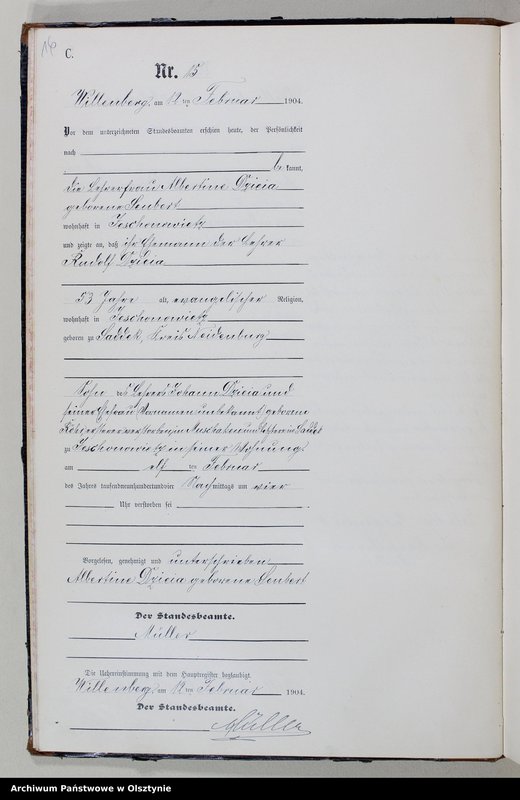 16
C.
Nr. 15
Willenberg, am 12 ten Februar 1904.
Vor dem unterzeichneten Standesbeamten erschien heute, der Persönlichkeit
nach
be kannt,
die Lehrerfrau Albertine Dzicia
geborene Seubert
wohnhaft in Jeschonowietz
und zeigte an, daß ihr Ehemann der Lehrer
Rudolf Dzicia
53 Jahre alt, evangelischer Religion,
wohnhaft in Jeschonowietz
geboren zu Saddek, Kreis Neidenburg
Sohn des Lehrers Johann Dzicia und
seiner Ehefrau Vornamen unbekannt geborene
verstorben in Muschaken und letztere in Saddek
zu Jeschonowietz in seiner Wohnung
am elf ten Februar
des Jahres tausendneunhundertundvier Nachmittags um vier
Uhr verstorben sei
Vorgelesen, genehmigt und unterschrieben
Albertine Dzicia geborene Seubert
Der Standesbeamte.
Müller
Die Uebereinstimmung mit dem Hauptregister beglaubigt.
Willenberg, am 12 ten Februar 1904.
Der Standesbeamte.
Müller
Archiwum Państwowe w Olsztynie